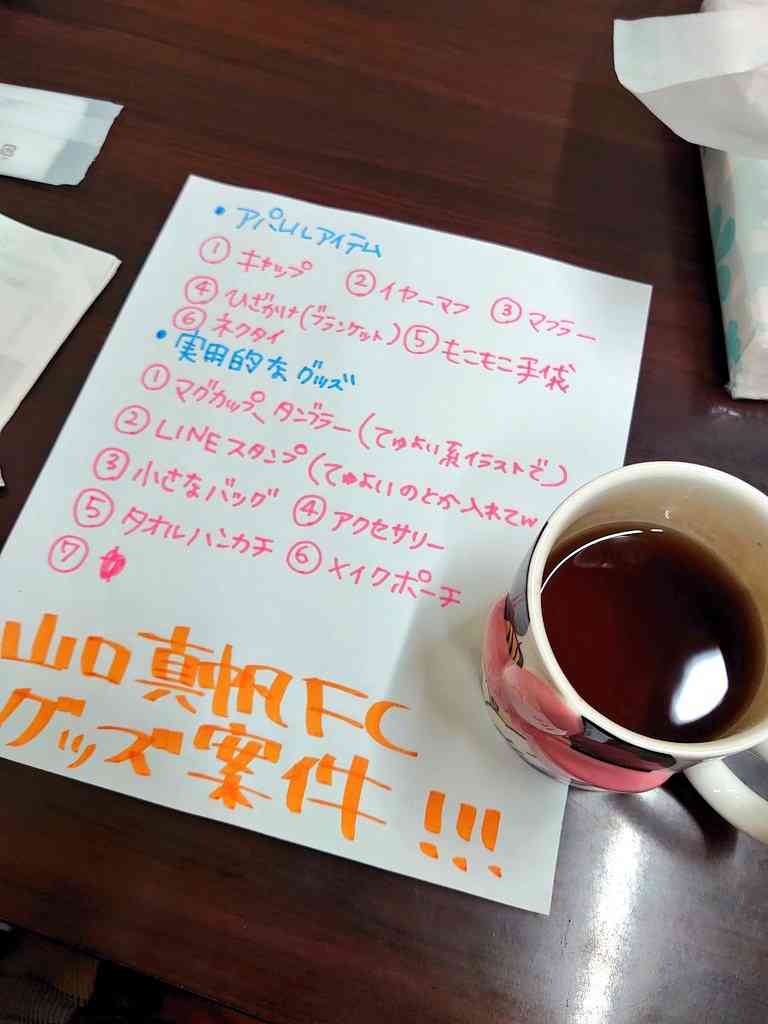 ・アパレルアイテム
① キャップ ② イヤーマフ ③ マフラー
④ ひざかけ(ブランケット) ⑤ もこもこ手袋
⑥ ネクタイ
・実用的なグッズ
① マグカップ、タンブラー(てゅよい系イラストで)
② LINEスタンプ(てゅよいのとか入れてw
③ 小さなバッグ ④ アクセサリー
⑤ タオルハンカチ ⑥ メイクポーチ
⑦
山口真帆FC
グッズ案件!!!